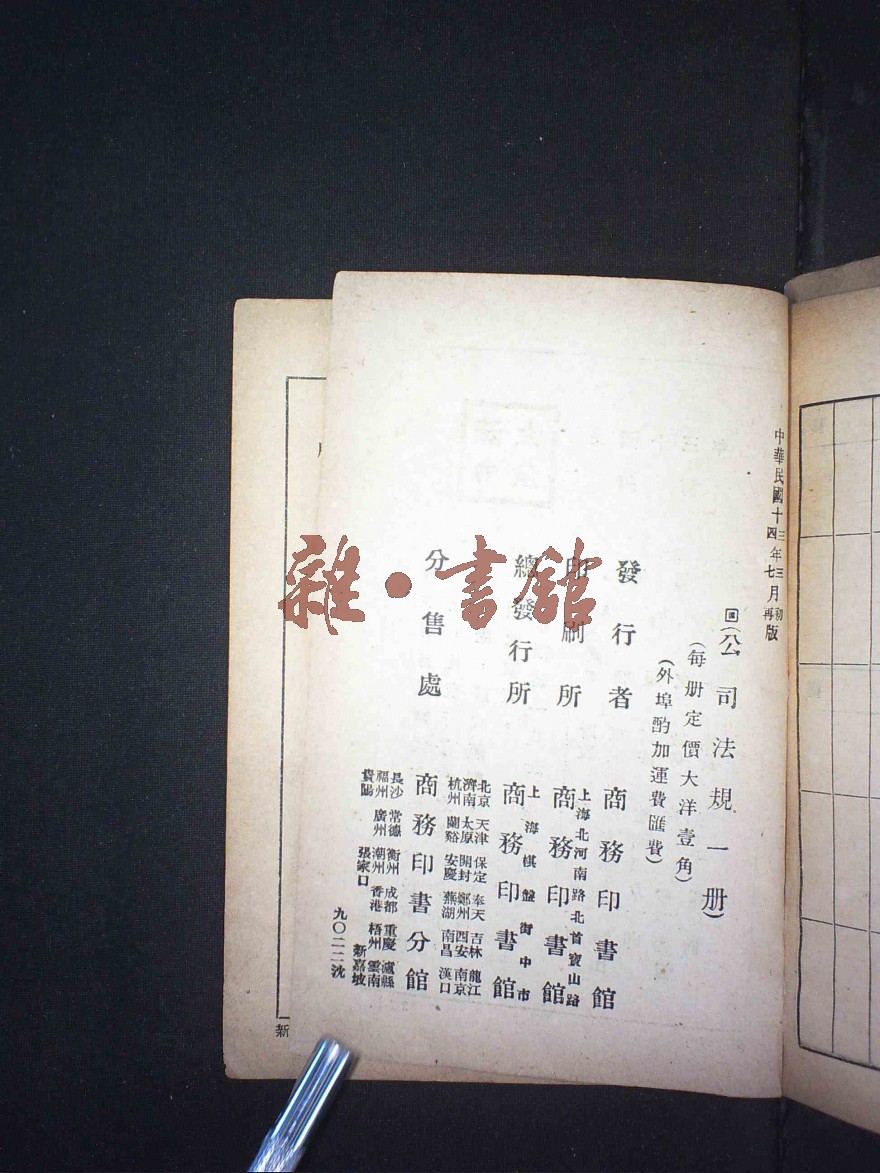 中華民國十三年三月初版
四 七 再
回(公司法規一册)
(每册定價大洋壹角)
(外埠酌加運費匯費)
發行者 商務印書館
上海北河南路北首寶山路
印刷所 商務印書館
上海棋盤街中市
總發行所 商務印書館
北京 天津 保定 奉天 吉林 龍江
濟南 太原 開封 鄭州 西安 南京
杭州 蘭谿 安慶 蕪湖 南昌 漢口
分售處 商務印書分館
長沙 常德 衡州 成都 重慶 瀘縣
福州 廣州 潮州 香港 梧州 雲南
貴陽 張家口 新嘉坡
九〇二二沈
新
雜·書館